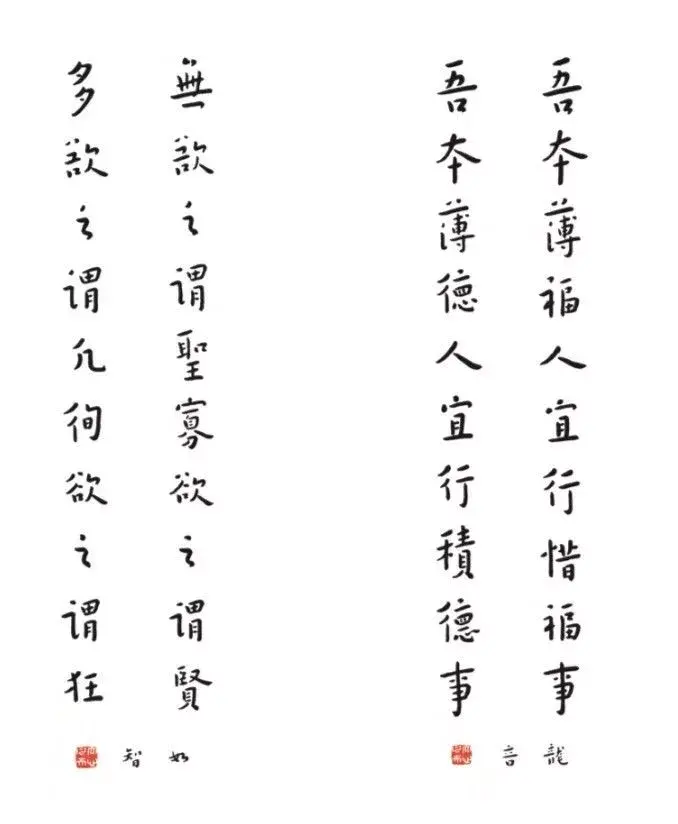 吾本薄福人宜行惜福事
吾本薄德人宜行積德事
龍音
無欲之谓聖寡欲之谓賢
多欲之谓凡徇欲之谓狂
如智